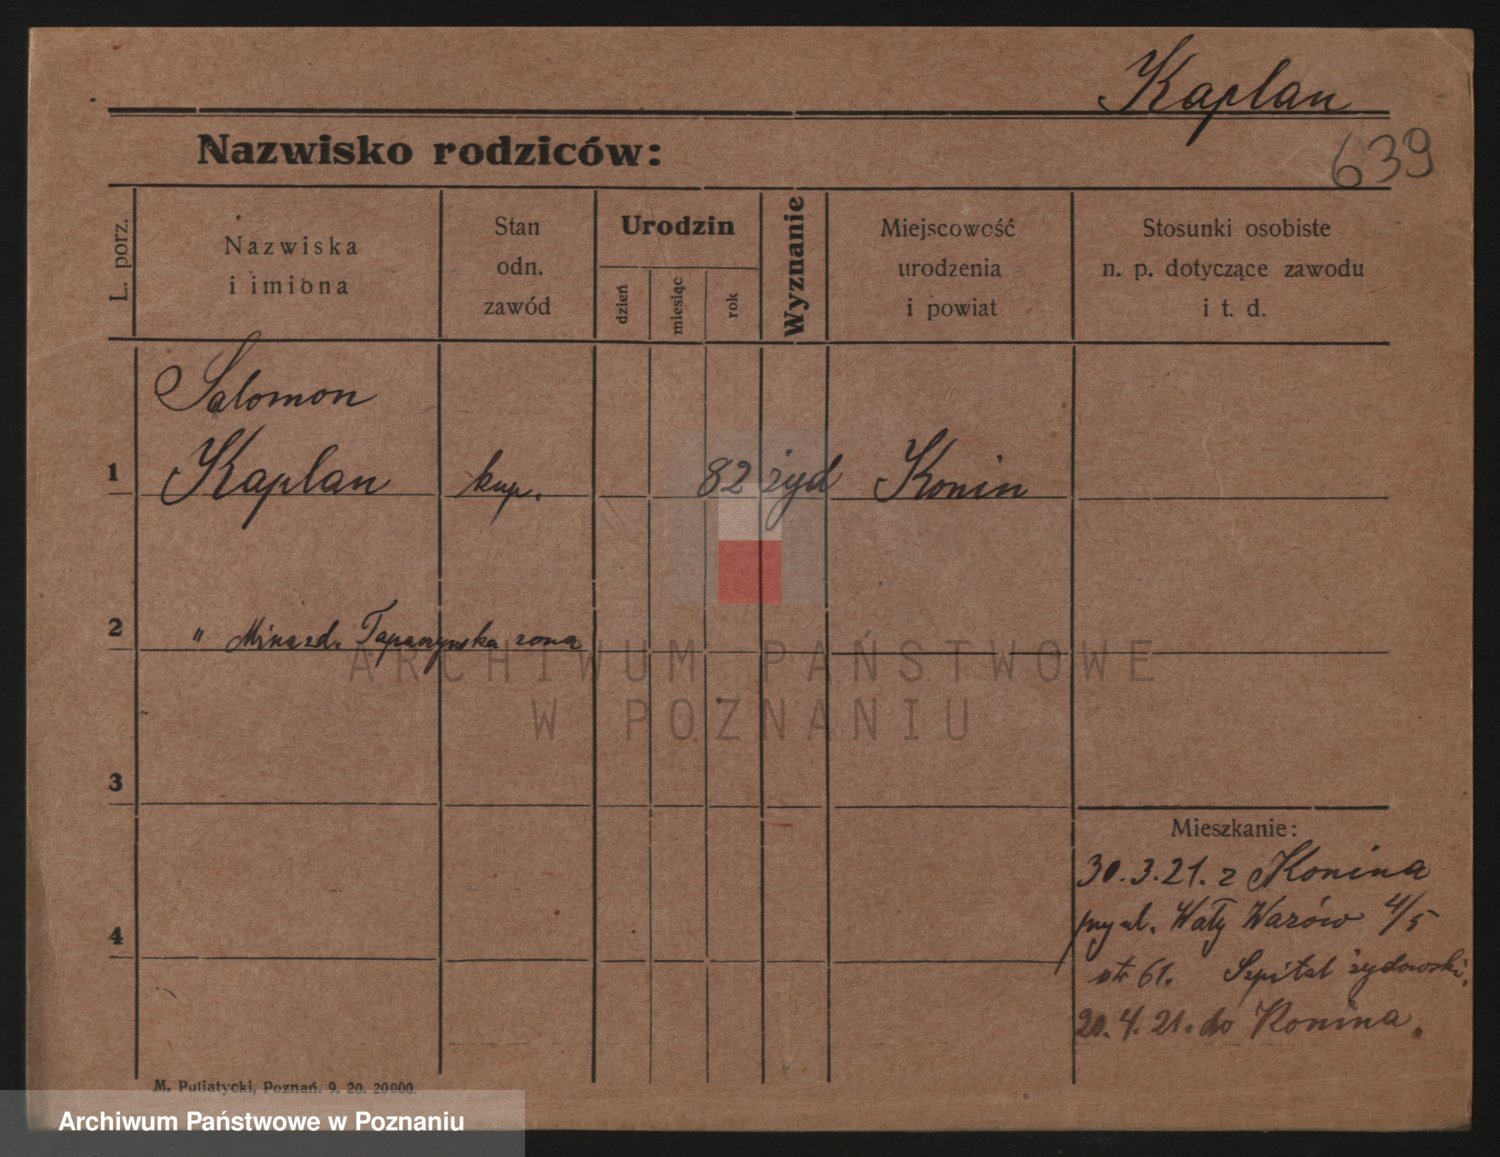 Kaplan
639
Nazwisko rodziców:
L. porz.
Nazwiska
i imiona
Stan
odn.
zawód
Urodzin
dzień
miesiąc
rok
Wyznanie
Miejscowość
urodzenia
i powiat
Stosunki osobiste
n. p. dotyczące zawodu
i t. d.
Salomon
1 Kaplan kup. 82 żyd Konin
2 " Mina zd. żona
3
4
Mieszkanie:
30.3.21. z Konina
ul. Wały Wazów 4/5
61. Szpital żydowski.
20.4.21. do Konina.
ARCHIWUM PAŃSTWOWE
W POZNANIU
M. Putiatycki, Poznań. 9. 20. 20000.
Archiwum Państwowe w Poznaniu